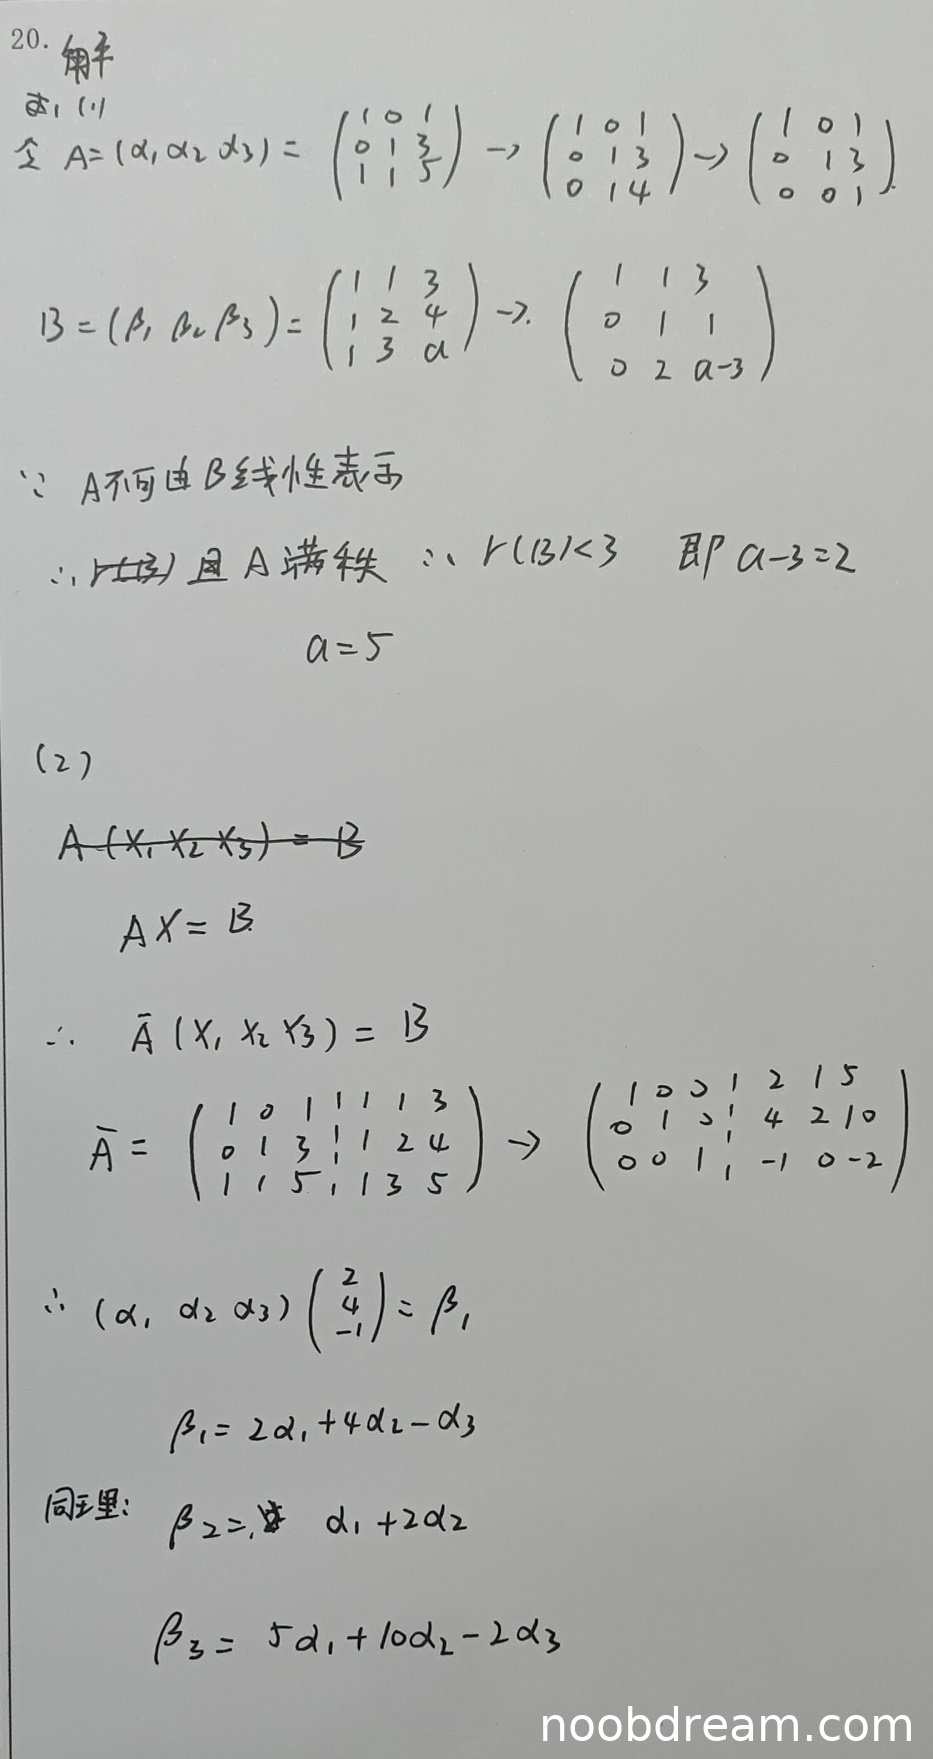 20. 解
(1)
令 A=(α₁ α₂ α₃) = (1 0 1; 0 1 3; 1 1 5) → (1 0 1; 0 1 3; 0 1 4) → (1 0 1; 0 1 3; 0 0 1).
B=(β₁ β₂ β₃)= (1 1 3; 1 2 4; 1 3 a) → (1 1 3; 0 1 1; 0 2 a-3)
∵ A不可由B线性表示
∴ r(B) 且 A 满秩 ∴ r(B)<3 即 a-3=2
a=5
(2)
A(X₁ X₂ X₃) = B
AX = B
∴ Ā(X₁ X₂ X₃) = B
Ā = (1 0 1 ¦ 1 1 3; 0 1 3 ¦ 1 2 4; 1 1 5 ¦ 1 3 5) → (1 0 0 ¦ 2 1 5; 0 1 0 ¦ 4 2 10; 0 0 1 ¦ -1 0 -2)
∴ (α₁ α₂ α₃)(2; 4; -1) = β₁
β₁ = 2α₁+4α₂-α₃
同理: β₂ = α₁+2α₂
β₃ = 5α₁+10α₂-2α₃
noobdream.com